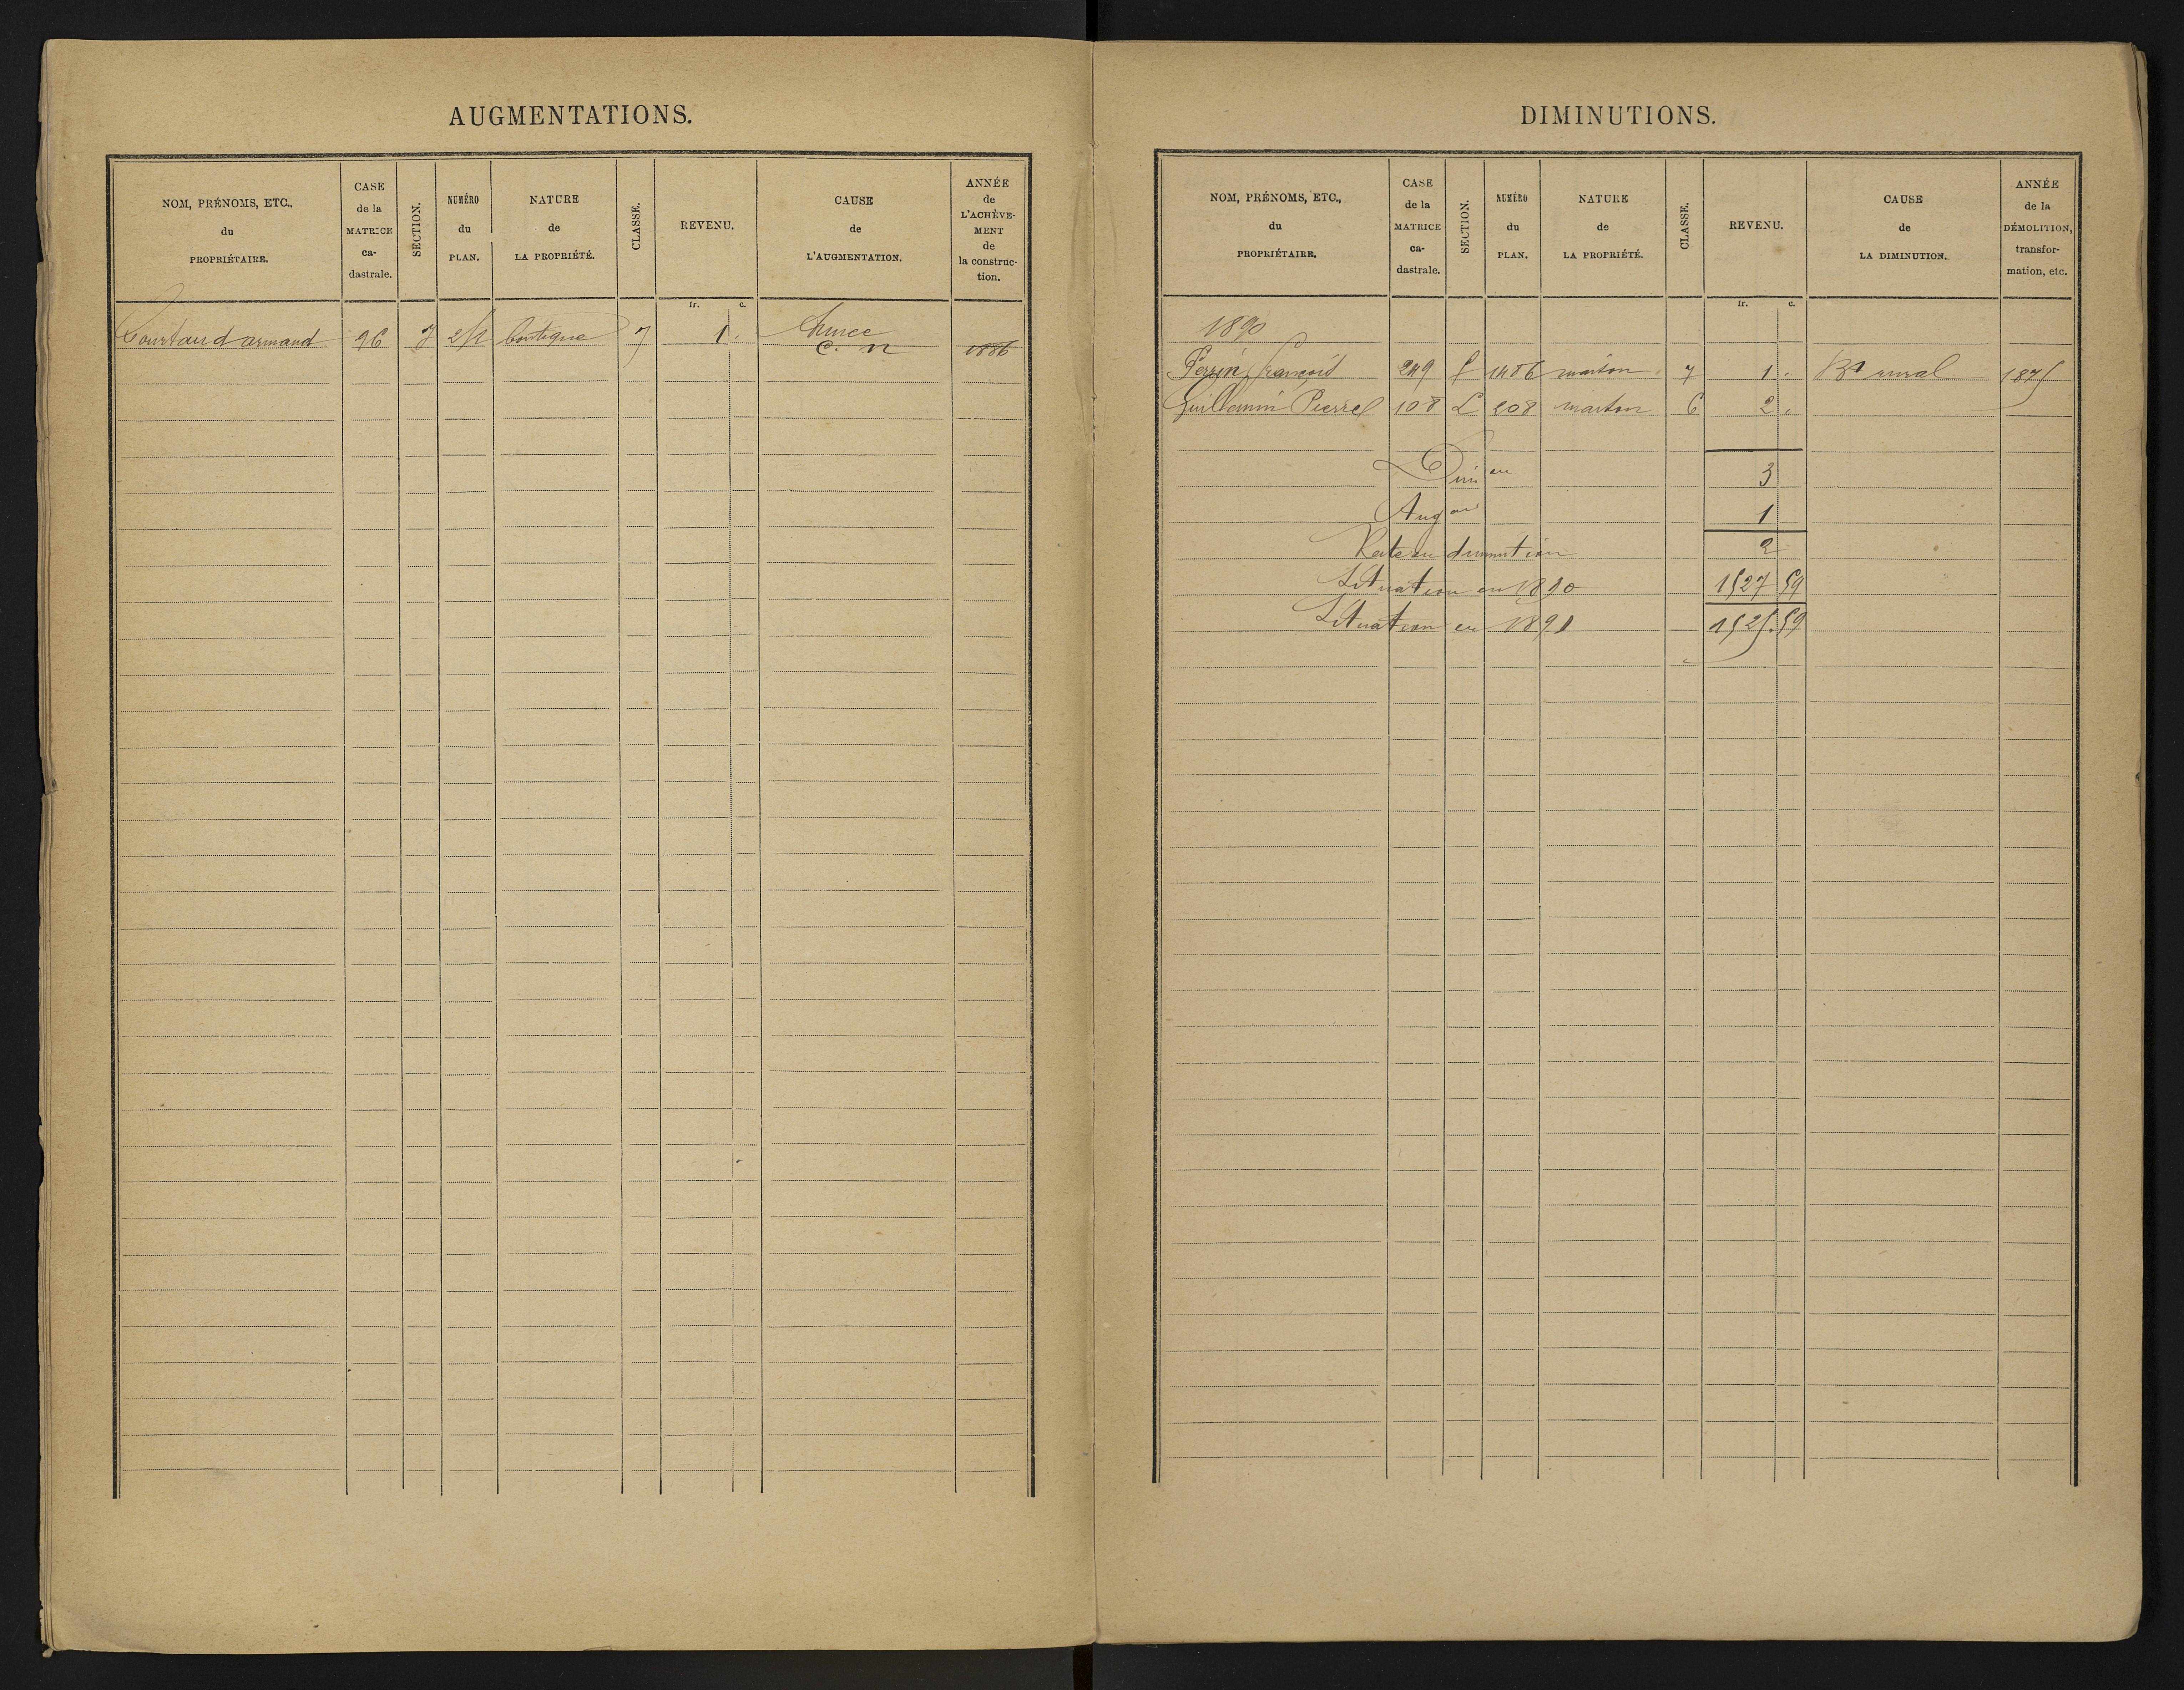 AUGMENTATIONS.
NOM, PRÉNOMS, ETC.,
du
PROPRIÉTAIRE.
CASE
de la
MATRICE
ca-
dastrale.
SECTION.
NUMÉRO
du
PLAN.
NATURE
de
LA PROPRIÉTÉ.
CLASSE.
REVENU.
CAUSE
de
L'AUGMENTATION.
ANNÉE
de
L'ACHÈVE-
MENT
de
la construc-
tion.
fr. c.
Courtaud armand 96 boutique 7 1
C. n 1886
DIMINUTIONS.
NOM, PRÉNOMS, ETC.,
du
PROPRIÉTAIRE.
CASE
de la
MATRICE
ca-
dastrale.
SECTION.
NUMÉRO
du
PLAN.
NATURE
de
LA PROPRIÉTÉ.
CLASSE.
REVENU.
CAUSE
de
LA DIMINUTION.
ANNÉE
de la
DÉMOLITION,
transfor-
mation, etc.
fr. c.
1890
Perrin François 249 1486 maison 7 1 Bt rural 1875
Guillaumin Pierre 108 L 208 maison 6 2
Dim on 3
Aug on 1
Reste en diminution 2
Situation en 1890 1527 59
Situation en 1891 1525.59